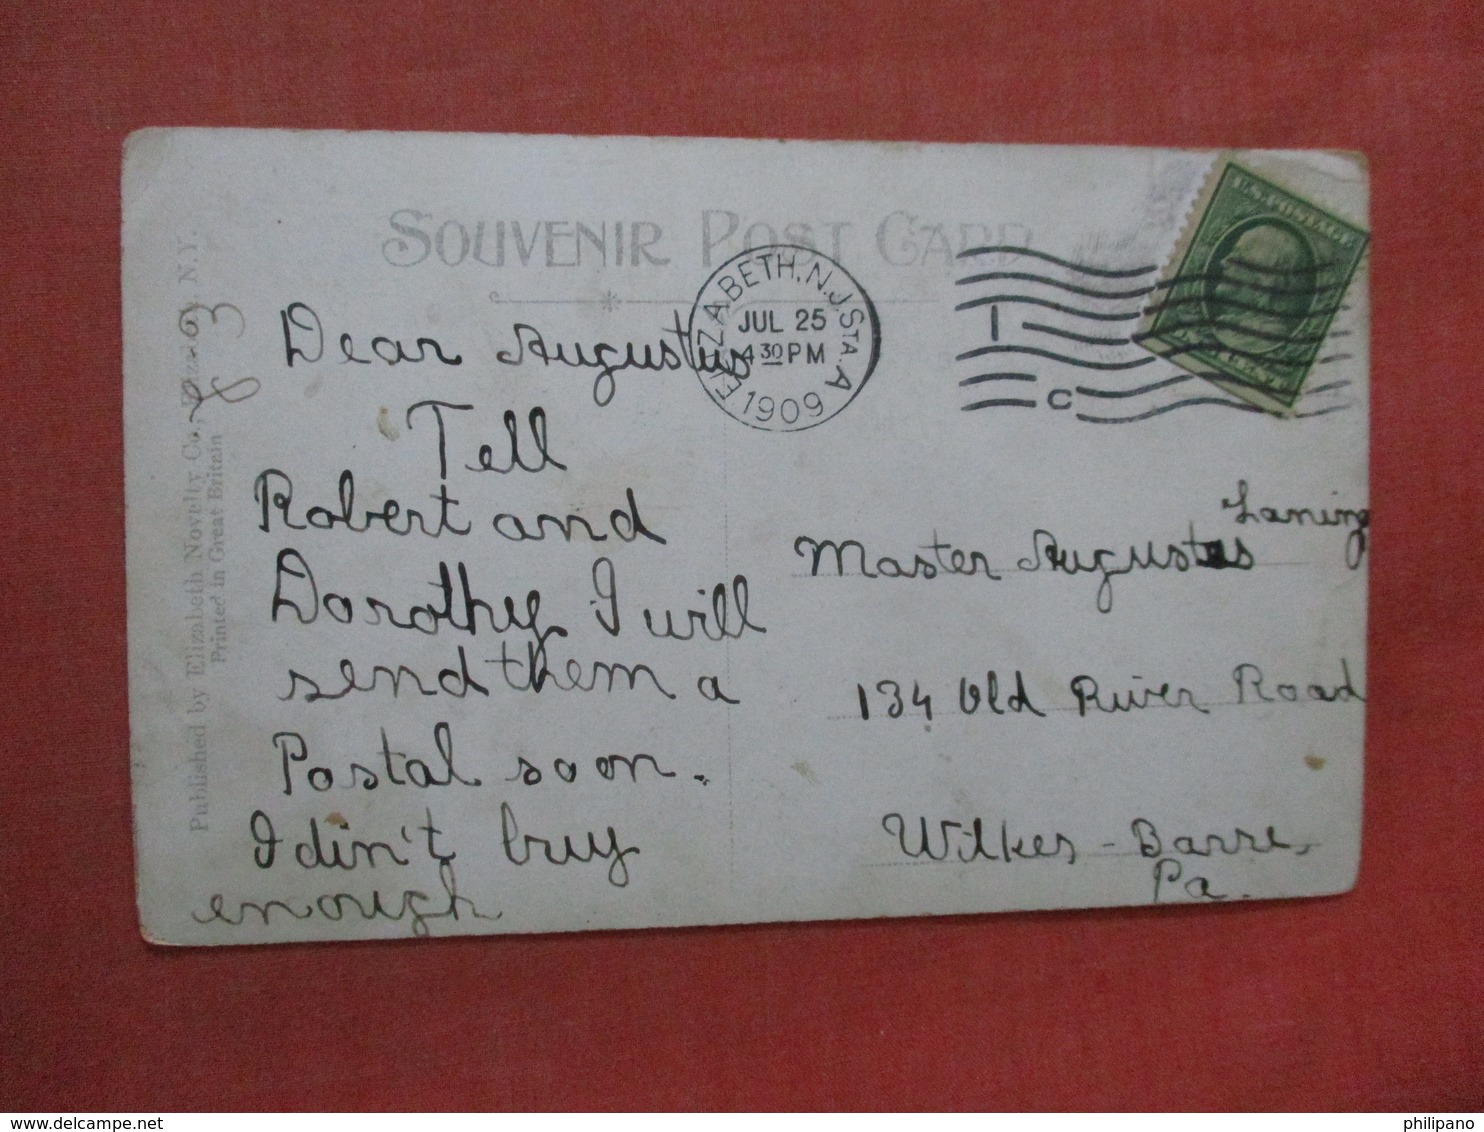 SOUVENIR POST CARD
ELIZABETH, N.J. STA. A
JUL 25
4 30 PM
1909
1 C
U.S. POSTAGE
Dear Augustus
Tell
Robert and
Dorothy I will
send them a
Postal soon.
I din't buy
enough
Laning
Master Augustus
134 Old River Road
Wilkes-Barre,
Pa.
Published by Elizabeth Novelty Co., N.Y.
Printed in Great Britain
83
www.delcampe.net
philipano